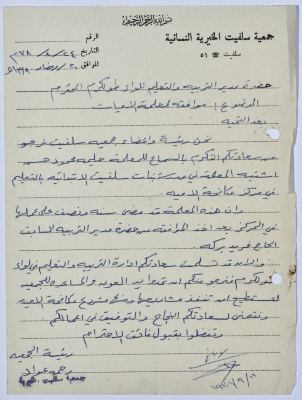 بسم الله الرحمن الرحيم
جمعية سلفيت الخيرية النسائية
سلفيت ☎ ٥١
الرقم
التاريخ
الموافق
حضرة مدير التربية والتعليم للواء طولكرم المحترم
الموضوع : موافقة لمعلمة الاميات
بعد التحية
نحن رئيسة واعضاء جمعية سلفيت نرجو
من سعادتكم التكرم بالسماح للمعلمة
المعلمة في مدرسة بنات سلفيت الابتدائية بالتعليم
في مركز مكافحة الامية
وان هذه المعلمة قد مضى سنة ونصف على عملها
في المركز بعد اخذ الموافقة من حضرة مدير التربية السابق
الحاج فريد بركه
والآن وقد تسلمت سعادتكم ادارة التربية والتعليم في لواء
طولكرم نرجو منكم ان تمدوا يد العون والمساعدة للجمعية
لتستطيع ان تنفذ مشاريعها ومنها مشروع مكافحة الامية
ونتمنى لسعادتكم النجاح والتوفيق في اعمالكم
وتفضلوا بقبول فائق الاحترام
رئيسة الجمعية
رحمه عواد
جمعية سلفيت الخيرية